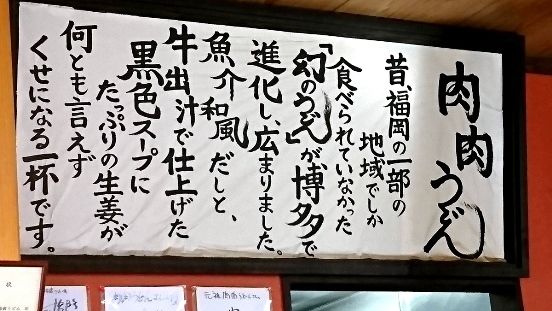 肉肉うどん
昔、福岡の一部の
地域でしか
食べられていなかった
「幻のうどん」が、博多で
進化し、広まりました。
魚介和風だしと、
牛出汁で仕上げた
黒色スープに
たっぷりの生姜が
何とも言えず
くせになる一杯です。